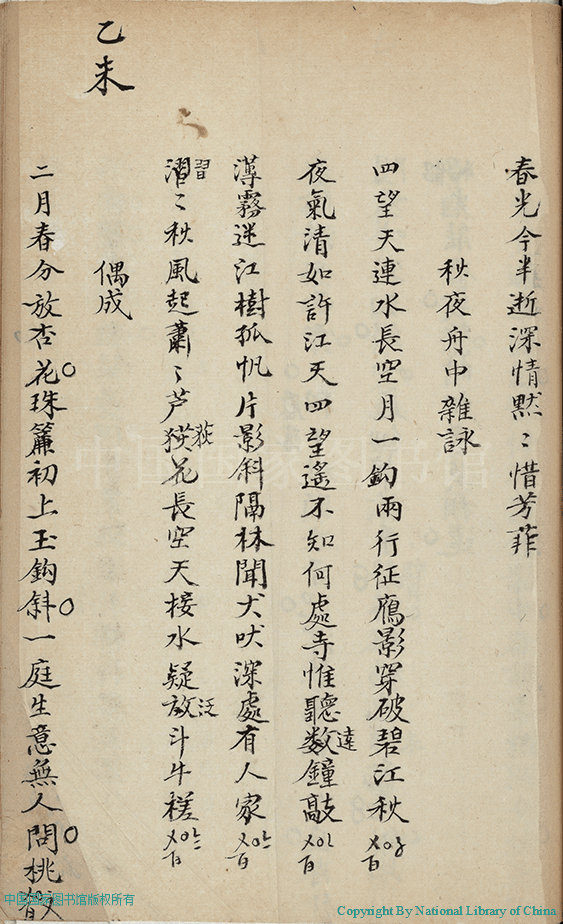 春光今半逝深情默〻惜芳菲
秋夜舟中雜詠
四望天連水長空月一鈎兩行征鴈影穿破碧江秋
夜氣清如許江天四望遙不知何處寺惟聽数鐘敲
達
薄霧迷江樹孤帆片影斜隔林聞犬吠深處有人家
濯〻秋風起蕭〻芦荻花長空天接水疑放斗牛槎
習
荻
泛
偶成
二月春分放杏花珠簾初上玉鈎斜一庭生意無人問桃
乙未
中国国家图书馆
中国国家图书馆版权所有
Copyright By National Library of China